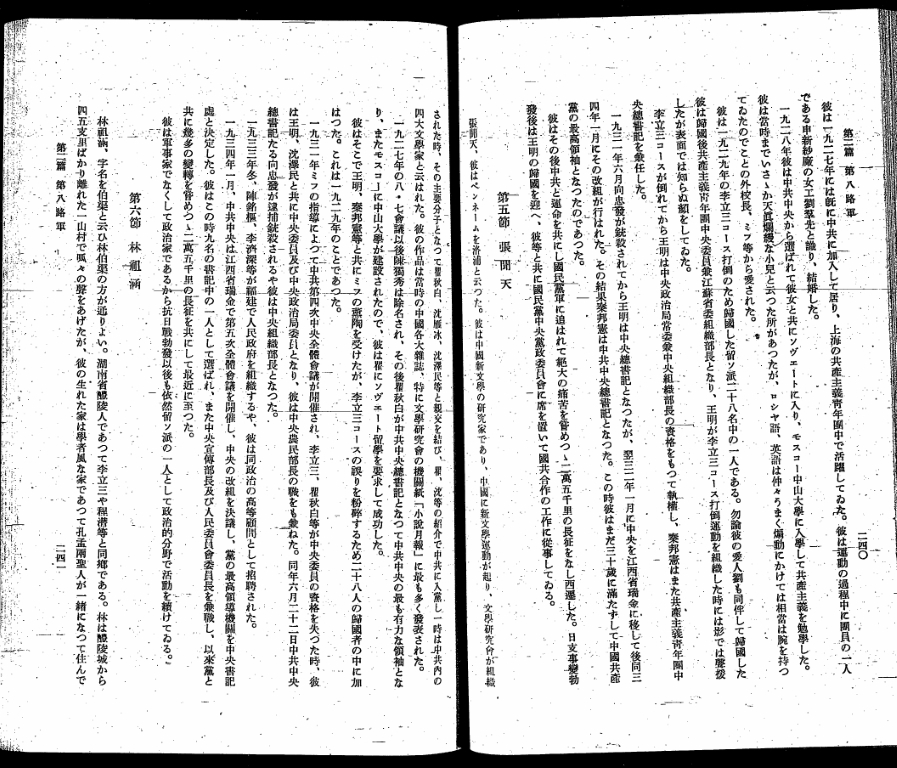 第二篇 第八路軍
二四〇
彼は一九二七年には既に中共に加入して居り、上海の共產主義靑年團中で活躍してゐた。彼は運動の過程中に團員の一人
である申新紗廠の女工劉羣先と識り、結婚した。
一九二八年彼は中共中央から選ばれて彼女と共にソヴエートに入り、モスコー中山大學に入學して共產主義を勉學した。
彼は當時までいさゝか天眞爛縵な小兒と云つた所があつたが、ロシヤ語、英語は仲々うまく煽動にかけては相當は腕を持つ
てゐたのでことの外校長、ミフ等から愛された。
彼は一九二九年の李立三コース打倒のため歸國した留ソ派二十八名中の一人である。勿論彼の愛人劉も同伴して歸國した
彼は歸國後共產主義靑年團中央委員兼江蘇省委組織部長となり、王明が李立三コース打倒運動を組織した時には影では聲援
したが表面では知らぬ顏をしてゐた。
李立三コースが倒れてから王明は中央政治局常委兼中央組織部長の資格をもつて執權し、秦邦憲はまた共產主義靑年團中
央總書記を兼任した。
一九三一年六月向忠發が銃殺されてから王明は中央總書記となつたが、翌三二年一月に中央を江西省瑞金に移して後同三
四年一月にその改組が行はれた。その結果秦邦憲は中共中央總書記となつた。この時彼はまだ三十歲に滿たずして中國共產
黨の最高領袖となつたのであつた。
彼はその後中共と運命を共にし國民黨軍に追はれて絕大の痛苦を嘗めつゝ二萬五千里の長征をなし西遷した。日支事變勃
發後は王明の歸國を迎へ、彼等と共に國民黨中央黨政委員會に席を置いて國共合作の工作に從事してゐる。
第五節 張聞天
張聞天、彼はペンネームを洛浦と云つた。彼は中國新文學の研究家であり、中國に新文學運動が起り、文學研究會が組織
された時、その主要分子となつて瞿秋白、沈雁冰、沈澤民等と親交を結び、瞿、沈等の紹介で中共に入黨し一時は中共內の
四大文學家と云はれた。彼の作品は當時の中國各大雜誌、特に文學硏究會の機關紙「小說月報」に最も多く發表された。
一九二七年の八・七會議以後陳獨秀は除名され、その後瞿秋白が中共中央總書記となつて中共中央の最も有力な領袖とな
り、またモスコーに中山大學が建設されたので、彼は瞿にソヴエート留學を要求して成功した。
彼はそこで王明、秦邦憲等と共にミフの薰陶を受けたが、李立三コースの誤りを粉碎するため二十八人の歸國者の中に加
はつた。これは一九二九年のことであつた。
一九三一年ミフの指導によつて中共第四次中央全體會議が開催され、李立三、瞿秋白等が中央委員の資格を失つた時、彼
は王明、沈澤民と共に中央委員及び中央政治局委員となり、彼は中央農民部長の職をも兼ねた。同年六月二十二日中共中央
總書記たる向忠發が逮捕銃殺されるや彼は中央組織部長となつた。
一九三三年冬、陳銘樞、李濟深等が福建で人民政府を組織するや、彼は同政治の高等顧問として招聘された。
一九三四年一月、中共中央は江西省瑞金で第五次全體會議を開催し、中央の改組を決議し、黨の最高領導機關を中央書記
處と決定した。彼はこの時九名の書記中の一人として選ばれ、また中央宣傳部長及び人民委員會委員長を兼職し、以來黨と
共に幾多の變轉を嘗めつゝ二萬五千里の長征を共にして最近に至つた。
彼は軍事家でなくして政治家であるから抗日戰勃發以後も依然留ソ派の一人として政治的分野で活動を續けてゐる。
第六節 林組涵
林祖涵、字名を伯渠と云ひ林伯渠の方が通りよい。湖南省醴陵人であつて李立三や程潛等と同鄕である。林は醴陵城から
四五支里ばかり離れた一山村で呱々の聲をあげたが、彼の生れた家は學者風な家であつて孔孟兩聖人が一緖になつて住んで
第二篇 第八路軍
二四一